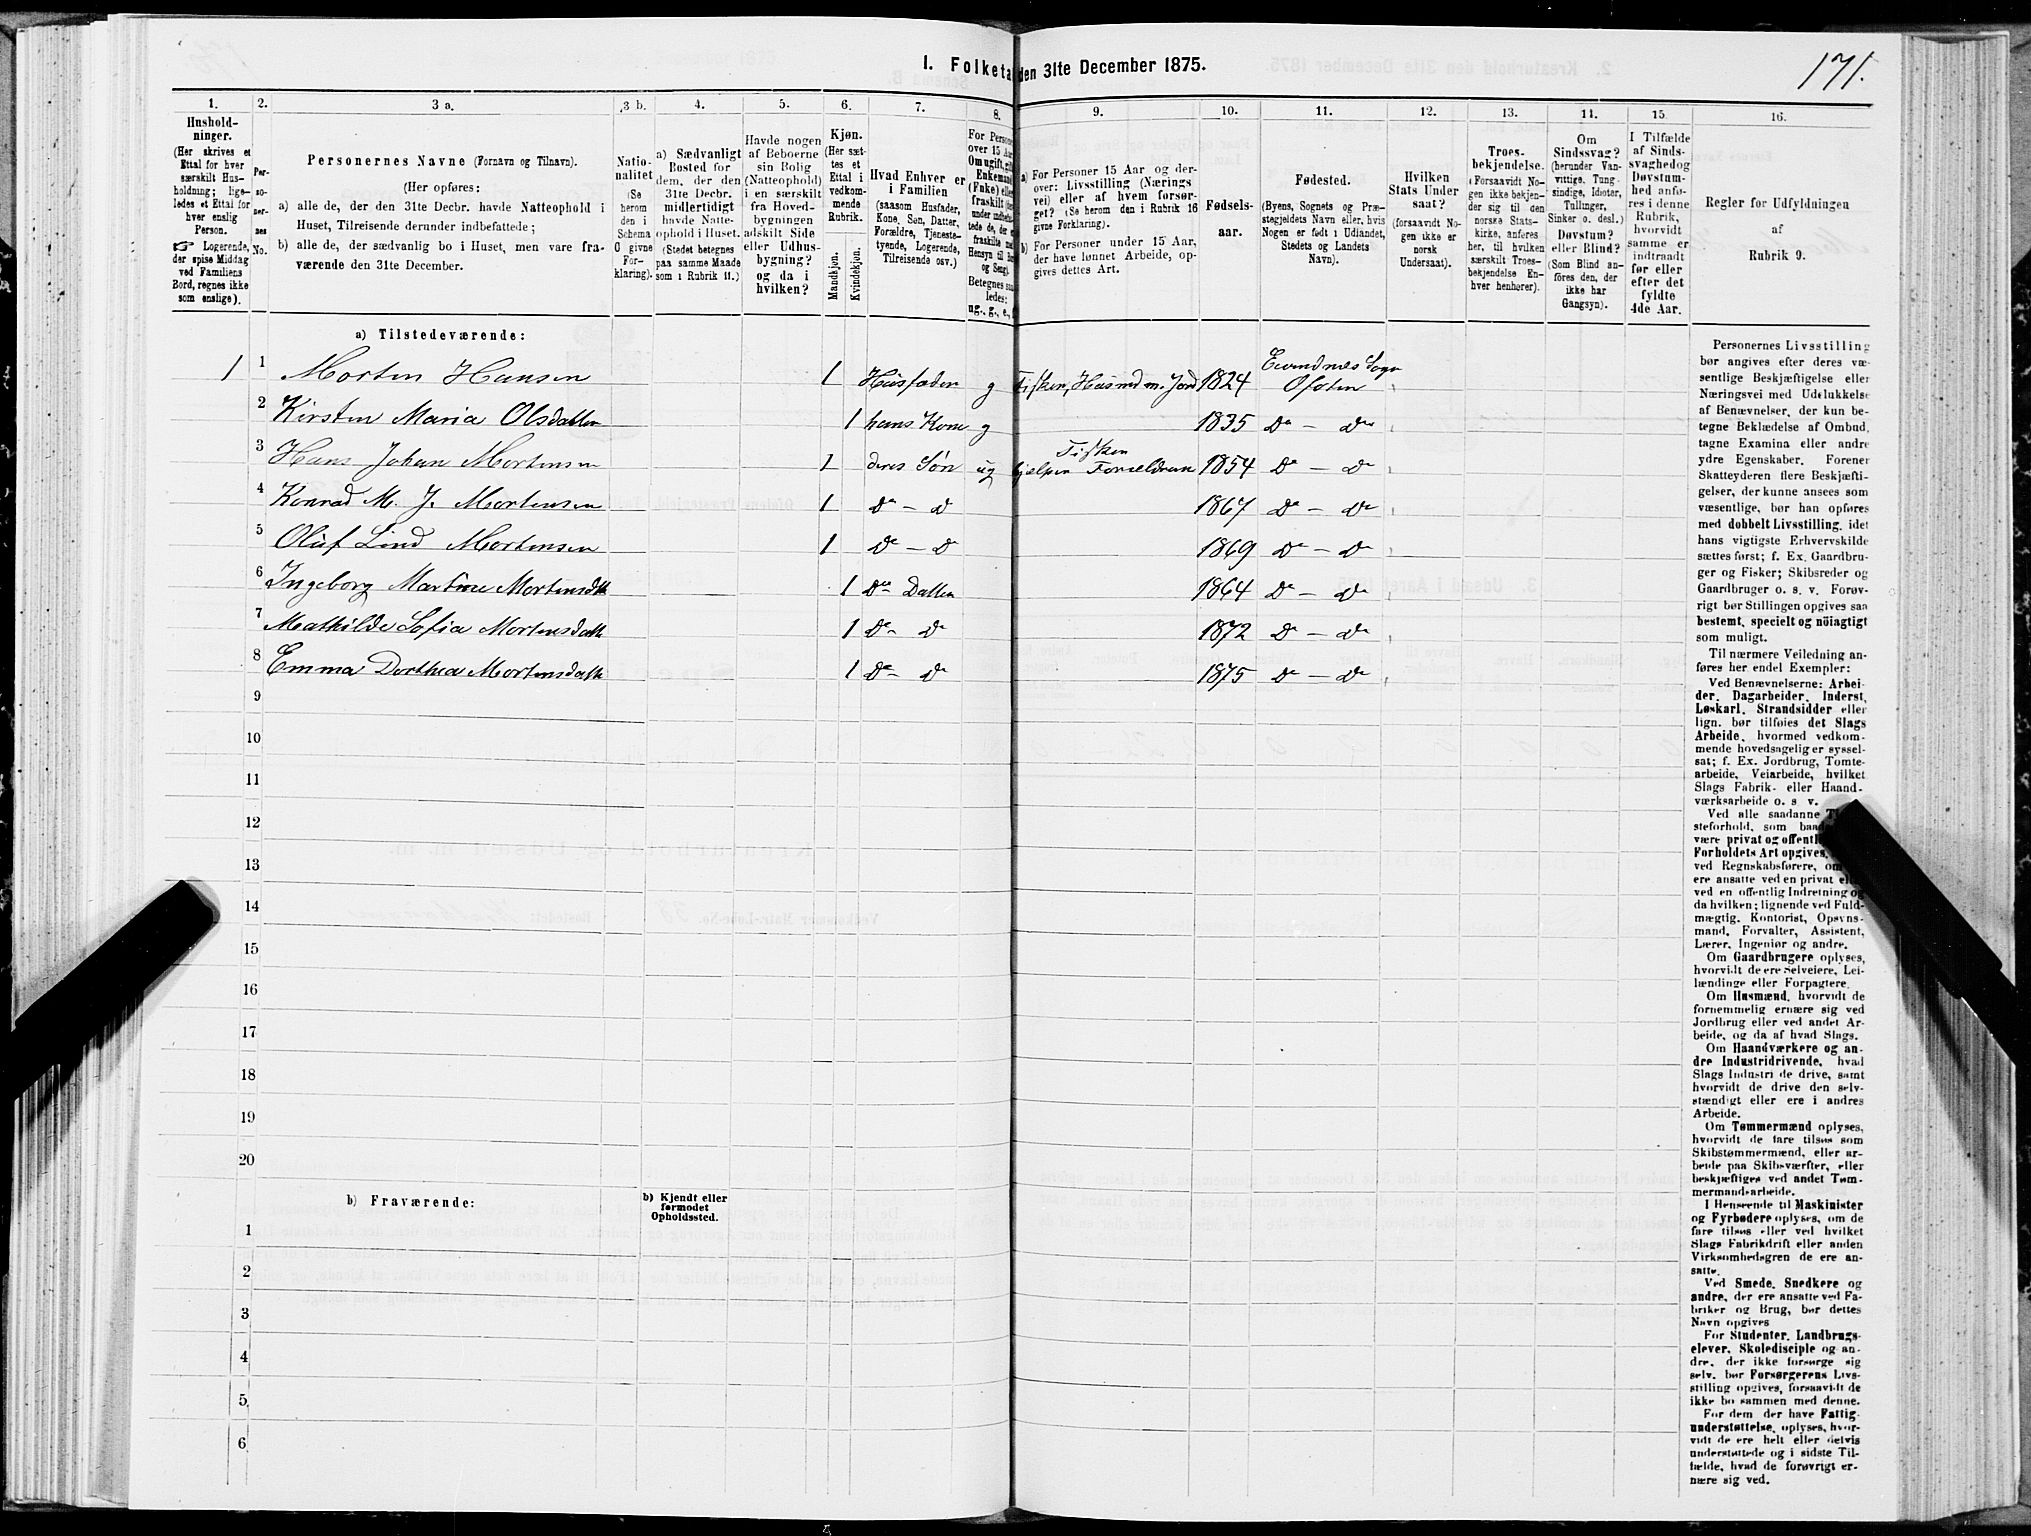 171.
I. Folketa
den 31te December 1875.
1.
Hushold-
ninger.
(Her skrives et
Ettal for hver
særskilt Hus-
holdning; lige-
ledes et Ettal for
hver enslig
Person.
☞ Logerende,
der spise Middag
ved Familiens
Bord, regnes ikke
som enslige).
2.
Per-
so-
ner-
ses
No.
3 a.
Personernes Navne (Fornavn og Tilnavn).
(Her opføres:
a) alle de, der den 31te Decbr. havde Natteophold i
Huset, Tilreisende derunder indbefattede;
b) alle de, der sædvanlig bo i Huset, men vare fra-
værende den 31te December.
3 b.
Natio-
nalitet
(Se
herom
den i
Schema
O givne
For-
klaring).
4.
a) Sædvanligt
Bosted for
dem, der den
31te Decbr.
midlertidigt
havde Natte-
ophold i Huset.
(Stedet betegnes
paa samme Maade
som i Rubrik 11.)
5.
Havde nogen
af Beboerne
sin Bolig
(Natteophold)
i en særskilt
fra Hoved-
bygningen
adskilt Side
eller Udhus-
bygning?
og da i
hvilken?
6.
Kjøn.
(Her sæt-
tes et
Ettal i
vedkom-
mende
Rubrik.
Mandkjøn.
Kvindekjøn.
7.
Hvad Enhver er
i Familien
(saasom Husfader,
Kone, Søn, Datter,
Forældre, Tjeneste-
tyende, Logerende,
Tilreisende osv.)
8.
For Person
over 15 Aar
Om ugift, gift
Enkemand
(Enke) elle
fraskilt
Betegnes saa
ledes:
ug., g., e., f
9.
a) For Personer 15 Aar og der-
over: Livsstilling (Nærings
vei) eller af hvem forsør-
get? (Se herom den i Rubrik 16
givne Forklaring).
b) For Personer under 15 Aar,
der have lønnet Arbeide, op-
gives dettes Art.
10.
Fødsels-
aar.
11.
Fødested.
(Byens, Sognets og Præ-
stegjeldets Navn eller, hvis
Nogen er født i Udlandet,
Stedets og Landets
Navn).
12.
Hvilken
Stats Under
saat?
(forsaavidt No-
gen ikke er
norsk
Undersaat).
13.
Troes-
bekjendelse.
(Forsaavidt No-
gen ikke bekjen-
der sig til den
norske Stats-
kirke, anføres
her, til hvilken
særskilt Troes-
bekjendelse En-
hver henhører).
14.
Om
Sindssvag?
(herunder Van-
vittige, Tung-
sindige, Idioter,
Tullinger,
Sinker o. desl.)
Døvstum?
eller Blind?
(Som Blind an-
føres den, der
ikke har
Gangsyn).
15.
I Tilfælde
af Sinds-
svaghed og
Døvstum-
hed anfø-
res i denne
Rubrik,
hvorvidt
samme er
indtraadt
før eller
efter det
fyldte
4de Aar.
16.
Regler for Udfyldningen
af
Rubrik 9.
a) Tilstedeværende:
1 1 Morten Hansen 1 Husfader g Fisker, Husmd m. Jord 1824 Evendnes Sogn Ofoten
2 Kirsten Maria Olsdatter 1 hans Kone g 1835 Do — Do
3 Hans Johan Mortensen 1 deres Søn ug Fisker hjelper Forældrene 1854 Do — Do
4 Konrad M. J. Mortensen 1 Do — Do 1867 Do — Do
5 Oluf Lind Mortensen 1 Do — Do 1869 Do — Do
6 Ingeborg Martine Mortensdtt 1 Do Datter 1864 Do — Do
7 Mathilde Sofia Mortensdatt 1 Do — Do 1872 Do — Do
8 Emma Dorthea Mortensdatt 1 Do — Do 1875 Do — Do
9
10
11
12
13
14
15
16
17
18
19
20
b) Fraværende:
b) Kjendt eller
formodet
Opholdssted.
1
2
3
4
5
6
Personernes Livsstilling
bør angives efter deres væ-
sentlige Beskjæftigelse eller
Næringsvei med Udelukkelse
af Benævnelser, der kun be-
tegne Beklædelse af Ombud,
tagne Examina eller andre
ydre Egenskaber. Forener
Skatteyderen flere Beskjæfti-
gelser, der kunne ansees som
væsentlige, bør han opføres
med dobbelt Livsstilling, idet
hans vigtigste Erhvervskilde
sættes først; f. Ex. Gaardbru-
ger og Fisker; Skibsreder og
Gaardbruger o. s. v. Forøv-
rigt bør Stillingen opgives saa
bestemt, specielt og nöiagtigt
som muligt.
Til nærmere Veiledning an-
føres her endel Exempler:
Ved Benævnelserne: Arbei-
der, Dagarbeider, Inderst,
Løskarl, Strandsidder eller
lign. bør tilføies det Slags
Arbeide, hvormed vedkom-
mende hovedsagelig er syssel-
sat; f. Ex. Jordbrug, Tomte-
arbeide, Veiarbeide, hvilket
Slags Fabrik- eller Haand-
værksarbeide o. s v.
Ved alle saadanne
steforhold, som
være privat og offent
Forholdets Art opgives,
ved Regnskabsførere, om
ere ansatte ved en privat
ved en offentlig Indretning og
da hvilken; lignende ved Fuld-
mægtig, Kontorist, Opsyns-
mand, Forvalter, Assistent,
Lærer, Ingeniør og andre.
Om Gaardbrugere oplyses,
hvorvidt de ere Selveiere, Lei-
lændinge eller Forpagtere.
Om Husmænd, hvorvidt de
fornemmelig ernære sig ved
Jordbrug eller ved andet Ar-
beide, og da af hvad Slags.
Om Haandværkere og an-
dre Industridrivende, hvad
Slags Industri de drive, samt
hvorvidt de drive den selv-
stændigt eller ere i andres
Arbeide.
Om Tømmermænd oplyses,
hvorvidt de fare tilsøs som
Skibstømmermænd, eller ar-
beide paa Skibsværfter, eller
beskjæftiges ved andet Tøm-
mermandsarbeide.
I Henseende til Maskinister
og Fyrbødere oplyses, om de
fare tilsøs eller ved hvilket
Slags Fabrikdrift eller anden
Virksomhedsgren de ere an-
satte.
Ved Smede, Snedkere og
andre, der ere ansatte ved Fa-
briker og Brug, bør dettes
Navn opgives
For Studenter, Landbrugs-
elever, Skoledisciple og an-
dre, der ikke forsørge sig
selv, bør Forsørgerens Livs-
stilling opgives, forsaavidt de
ikke bo sammen med denne.
For dem, der have Fattig-
understøttelse, oplyses, hvor-
vidt de ere helt eller delvis
understøttede og i sidste Til-
fælde, hvad de forøvrigt er-
nære sig ved.